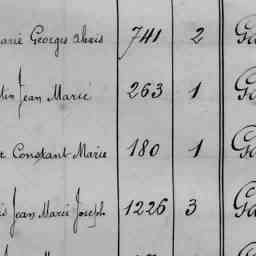 arié Georges Alexis 741 2 Ga
tin Jean Marie 263 1 Ga
t Constant Marie 180 1 Ga
is Jean Marie Joseph 1226 3 Ga